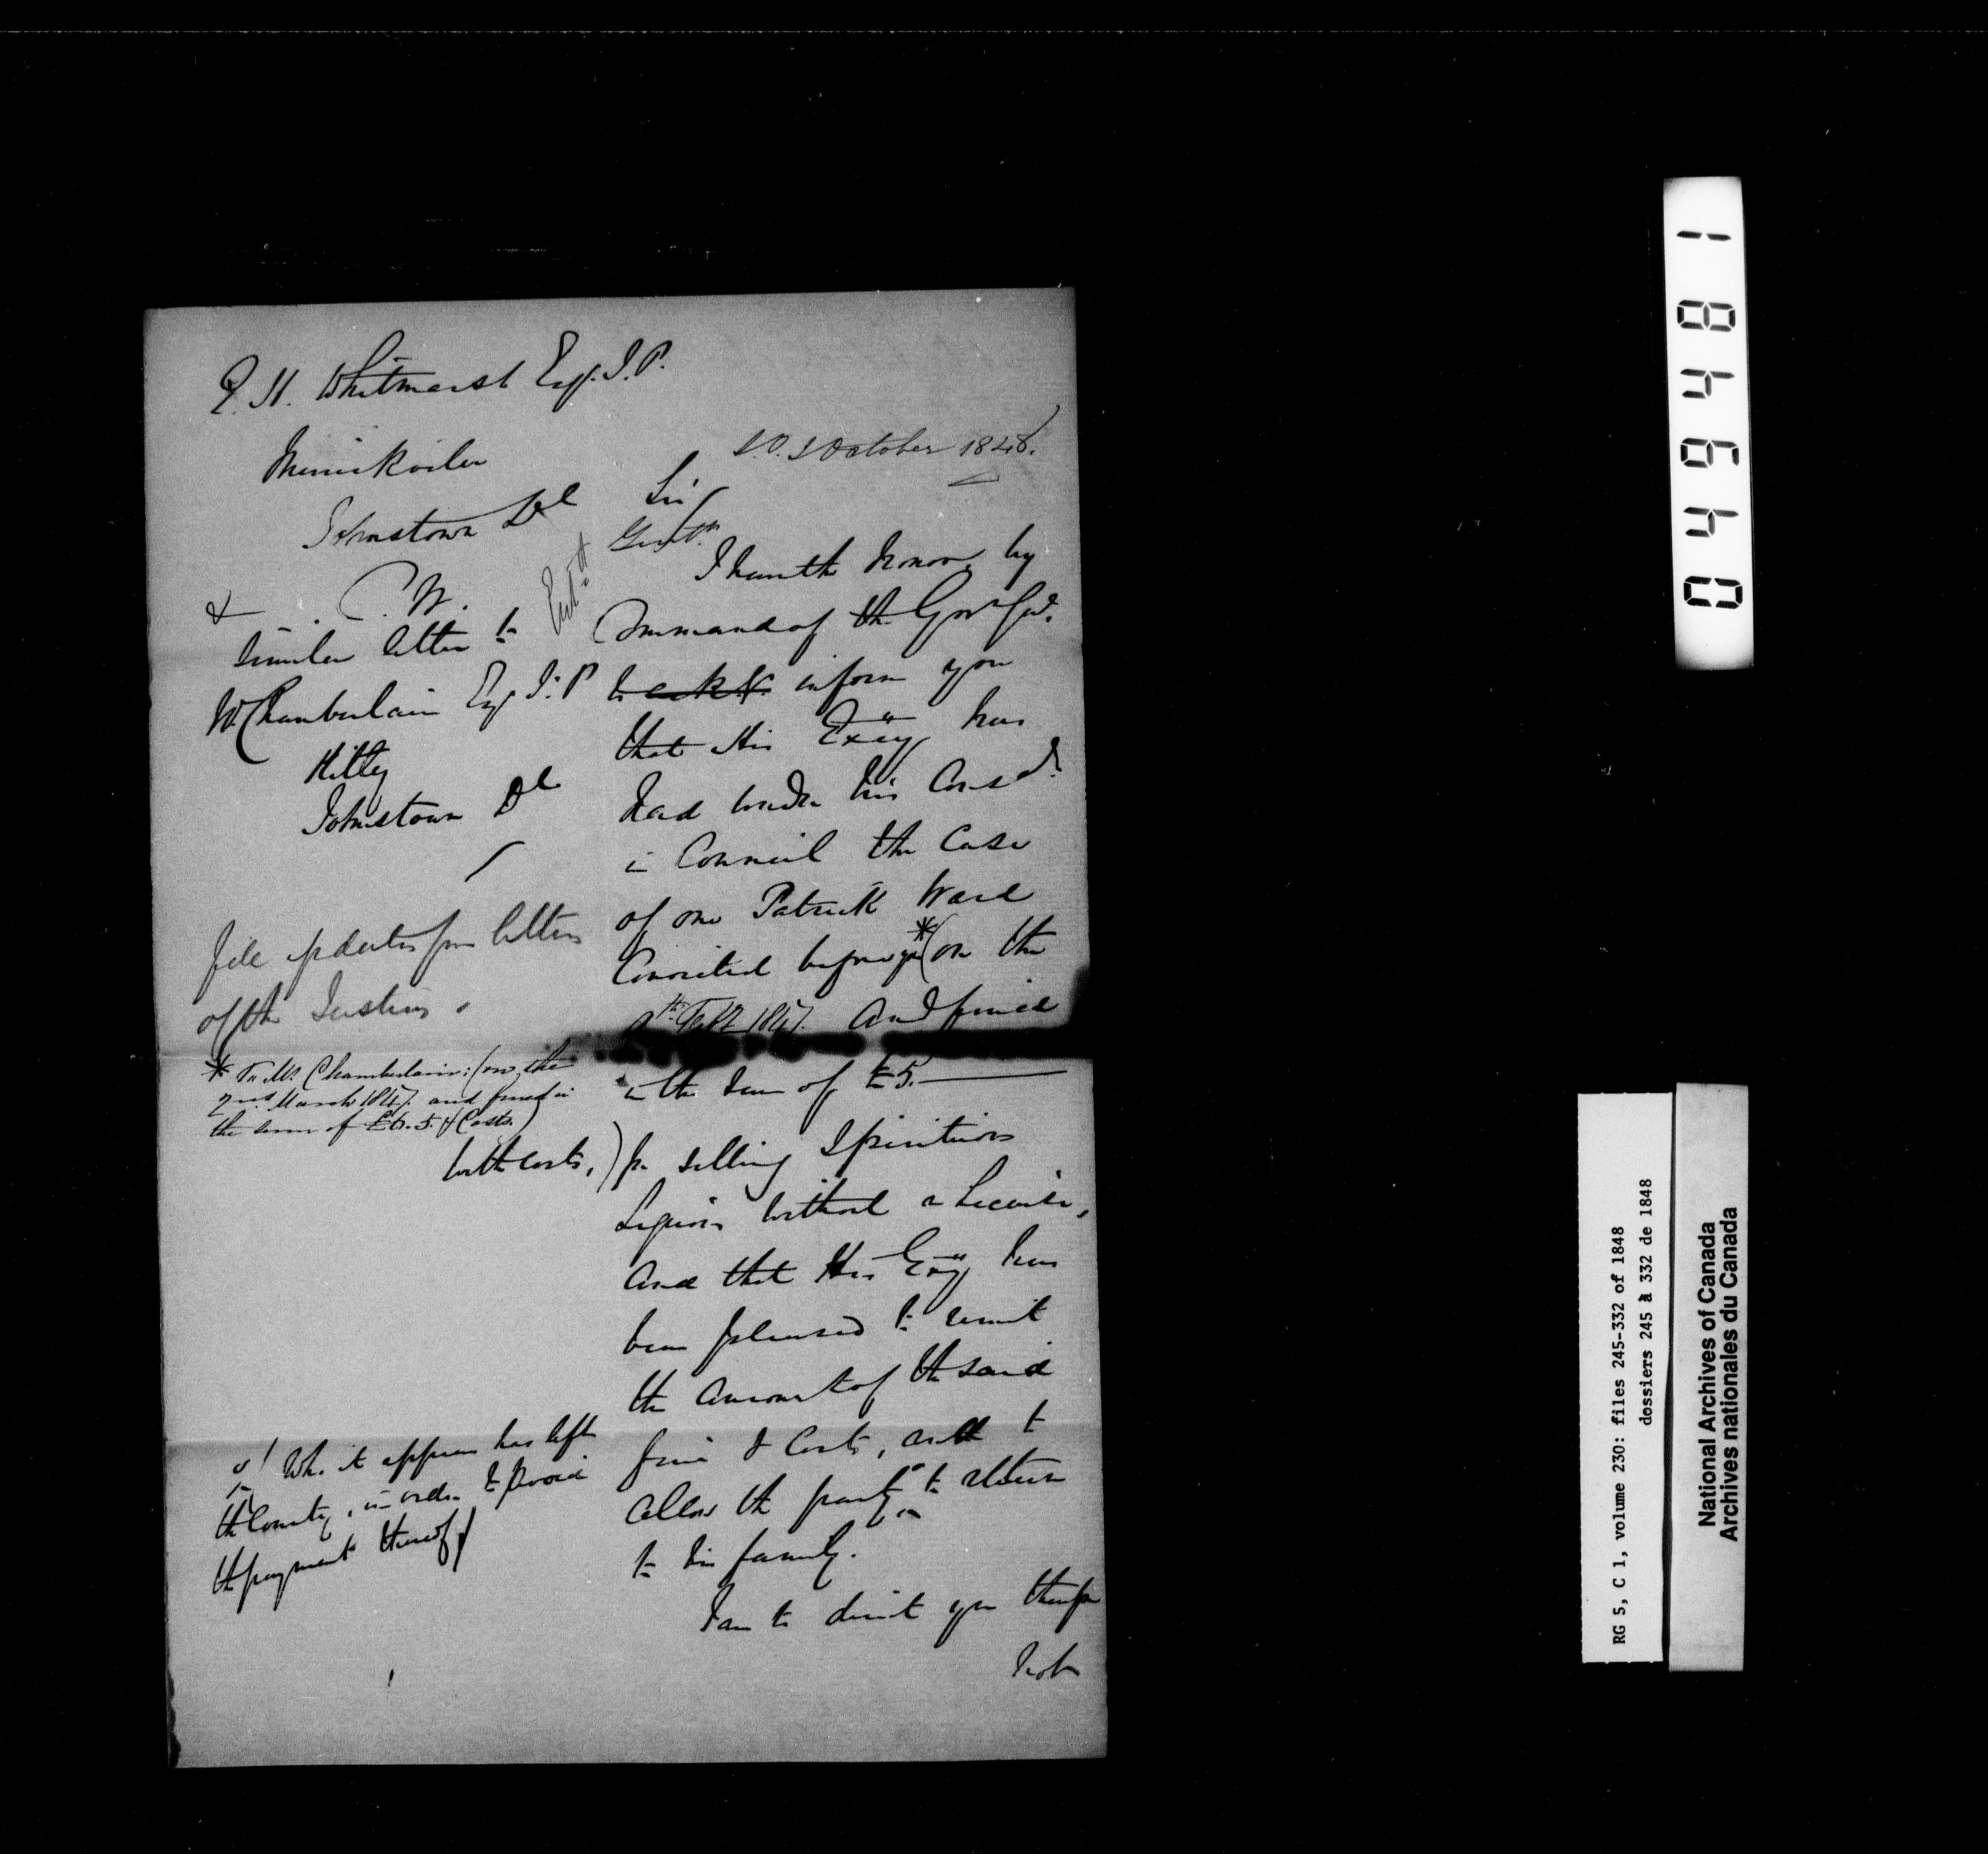 E. H. Whitmarsh Esqr. J.P.
Merrickville
Johnstown Dt
C.W.
&
similar letter to
W. Chamberlain Esq J.P
Kitley
Johnstown Dt
file updates from letters
of the Justices.
* To Mr. Chamberlain: (on the
2nd March 1847. and fined in
the sum of £6.5. & Costs.)
with costs,)
o/ Who it appears has left
the Country, in order to avoid
the payment thereof/
S.O. October 1848.
Sir
Entd
I have the honor, by
Command of the Govr Genl.
to inform you
that His Excy has
had under his Consdn
in Council the Case
of one Patrick Ward
Convicted before you * (on the
Sept 1847. and fined
in the sum of £5.
for selling Spirituous
Liquors without a License,
and that His Excy has
been pleased to remit
the amount of the said
fine & Costs, and to
allow the party o to return
to his family.
I am to direct you therefore
not
184640
RG 5, C 1, volume 230: files 245-332 of 1848
dossiers 245 à 332 de 1848
National Archives of Canada
Archives nationales du Canada